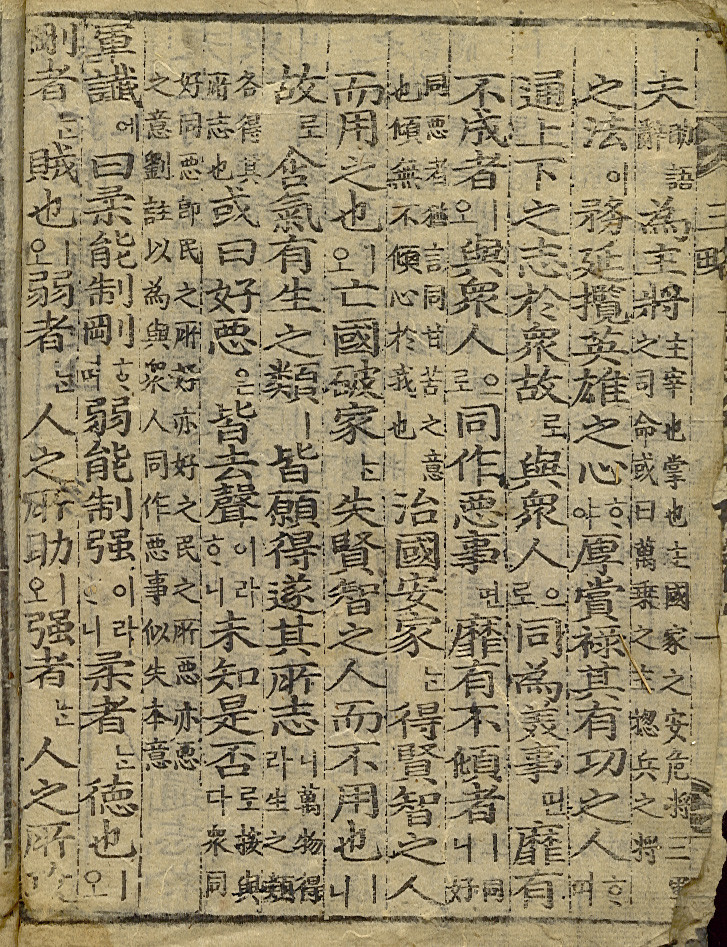 三略 一
夫助語辭為主將主宰也掌也主國家之安危將三軍之司命或曰萬乘之主摠兵之將
之法이務延攬英雄之心ᄒᆞ야厚賞祿其有功之人ᄒᆞ며
通上下之志於衆故로與衆人으로同為美事면靡有
不成者ㅣ오與衆人으로同作惡事면靡有不傾者ㅣ니同好
同惡者猶言同甘苦之意也傾無不傾心於我也治國安家ᄂᆞᆫ得賢智之人
而用之也ㅣ오亡國破家ᄂᆞᆫ失賢智之人而不用也ㅣ니
故로含氣有生之類ㅣ皆願得遂其所志니라萬物得生之類
各得其所志也或曰好惡은皆去聲이라ᄒᆞ니未知是否로다接與衆同
好同惡即民之所好亦好之民之所惡亦惡之意劉註以為與衆人同作惡事似失本意
軍讖에曰柔能制剛ᄒᆞ며弱能制强이라ᄒᆞ니柔者ᄂᆞᆫ德也ㅣ오
剛者ᄂᆞᆫ賊也ㅣ오弱者ᄂᆞᆫ人之所助ㅣ오强者ᄂᆞᆫ人之所攻